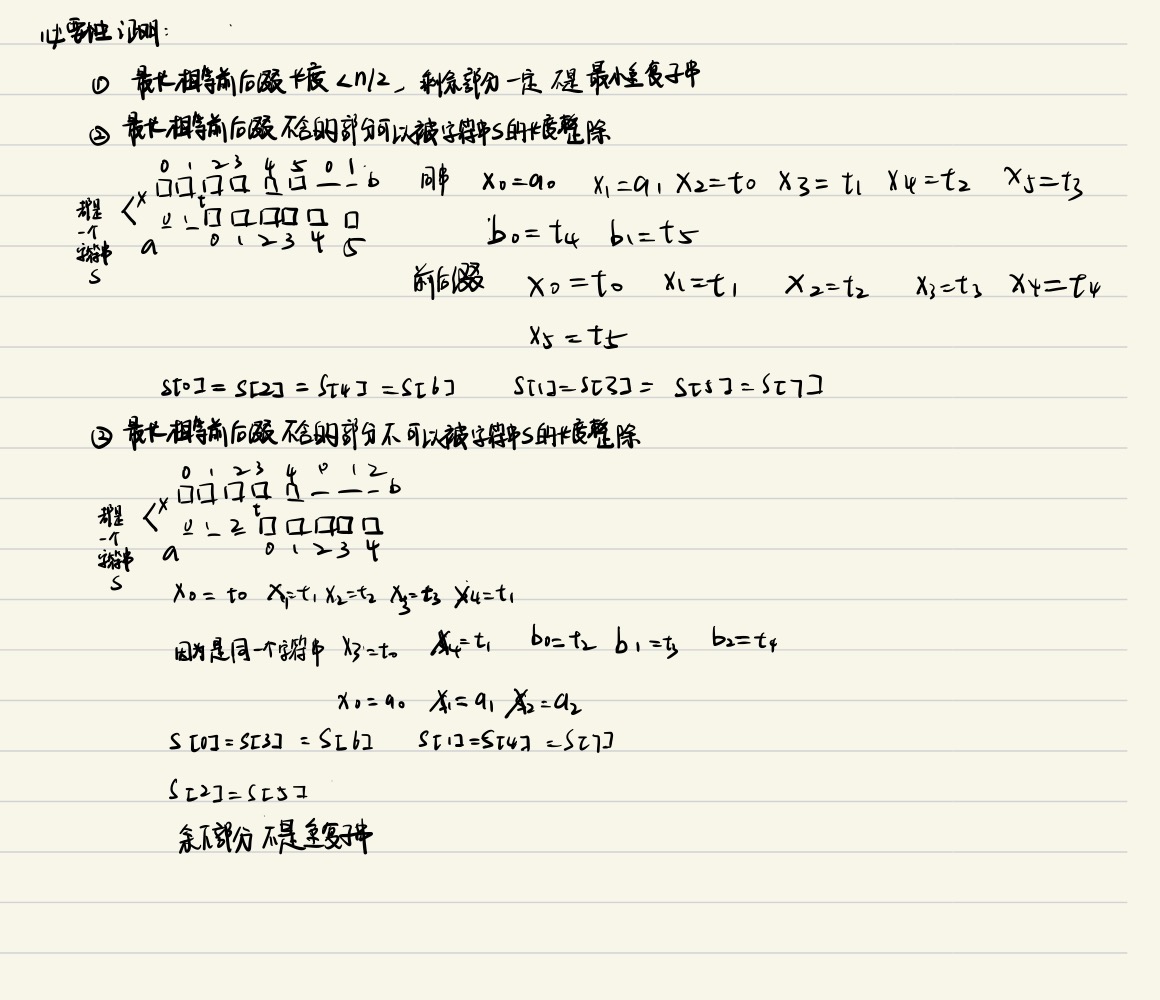 必要性证明:
① 最长相等前后缀长度<n/2, 剩余部分一定不是最小重复子串
② 最长相等前后缀不包含的部分可以被字符串S的长度整除
0 1 2 3 4 5 0 1
x b 同串 x0=a0 x1=a1 x2=t0 x3=t1 x4=t2 x5=t3
都是一个字符串S
t
a 0 1 0 1 2 3 4 5
b0=t4 b1=t5
前后缀 x0=t0 x1=t1 x2=t2 x3=t3 x4=t4
x5=t5
S[0]=S[2]=S[4]=S[6] S[1]=S[3]=S[5]=S[7]
③ 最长相等前后缀不包含的部分不可以被字符串S的长度整除
0 1 2 3 4 0 1 2
x b
都是一个字符串S
t
a 0 1 2 0 1 2 3 4
x0=t0 x1=t1 x2=t2 x3=t3 x4=t1
因为是同一个字符串 x3=t0 x4=t1 b0=t2 b1=t3 b2=t4
x0=a0 x1=a1 x2=a2
S[0]=S[3]=S[6] S[1]=S[4]=S[7]
S[2]=S[5]
余下部分不是重复子串